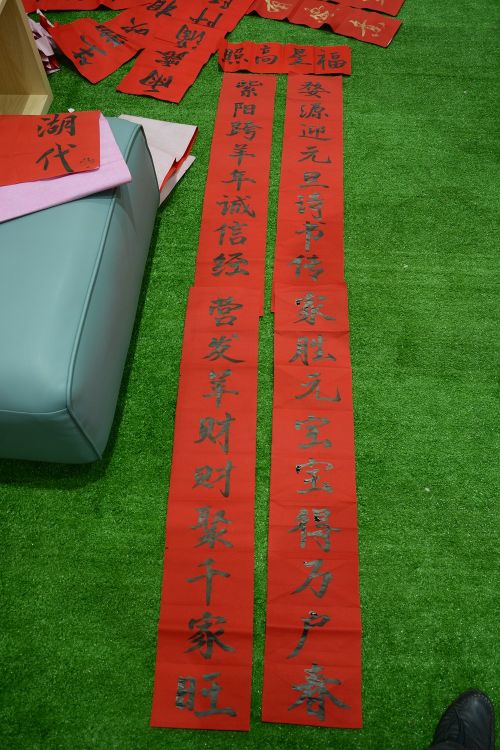 福星高照
婺源迎元旦诗书传家胜元宝宝得万户春
紫阳跨羊年诚信经营发羊财财聚千家旺
湖
代